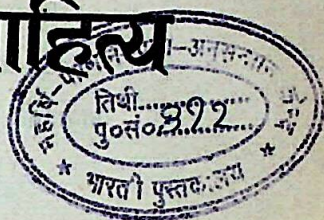 ाहित्य
महर्षि-
-अनुसन्धान केन्द्र
तिथी..............
पु०सं०३१२
* भारती पुस्तकालय *